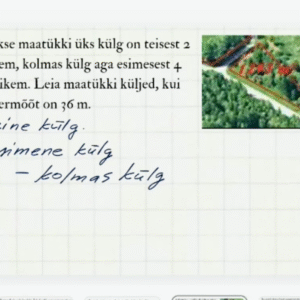 kse maatükki üks külg on teisest 2
em, kolmas külg aga esimesest 4
ikem. Leia maatükki küljed, kui
ermõõt on 36 m.
ine külg.
simene külg
– kolmas külg